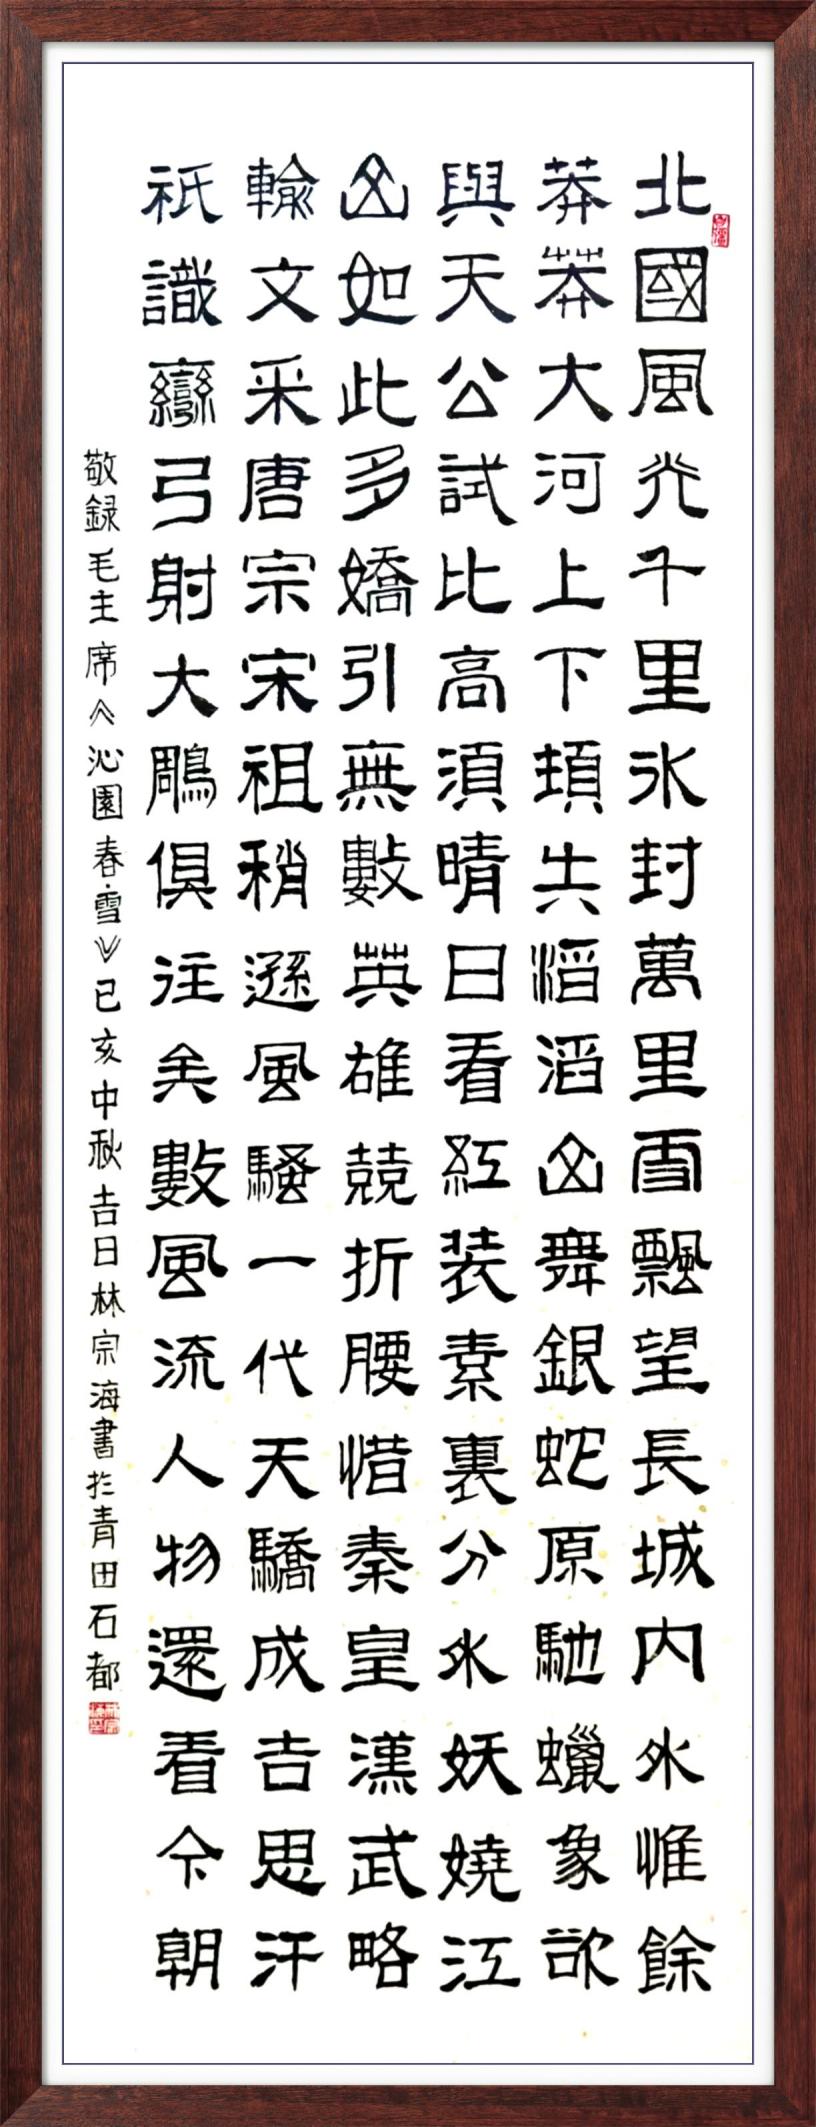 北國風光千里冰封萬里雪飄望長城内外惟餘
莽莽大河上下頓失滔滔山舞銀蛇原馳蠟象欲
與天公試比高須晴日看紅装素裏分外妖嬈江
山如此多嬌引無數英雄競折腰惜秦皇漢武略
輸文采唐宗宋祖稍遜風騷一代天驕成吉思汗
祇識彎弓射大鵰俱往矣數風流人物還看今朝
敬録毛主席《沁園春·雪》己亥中秋吉日林宗海書於青田石都